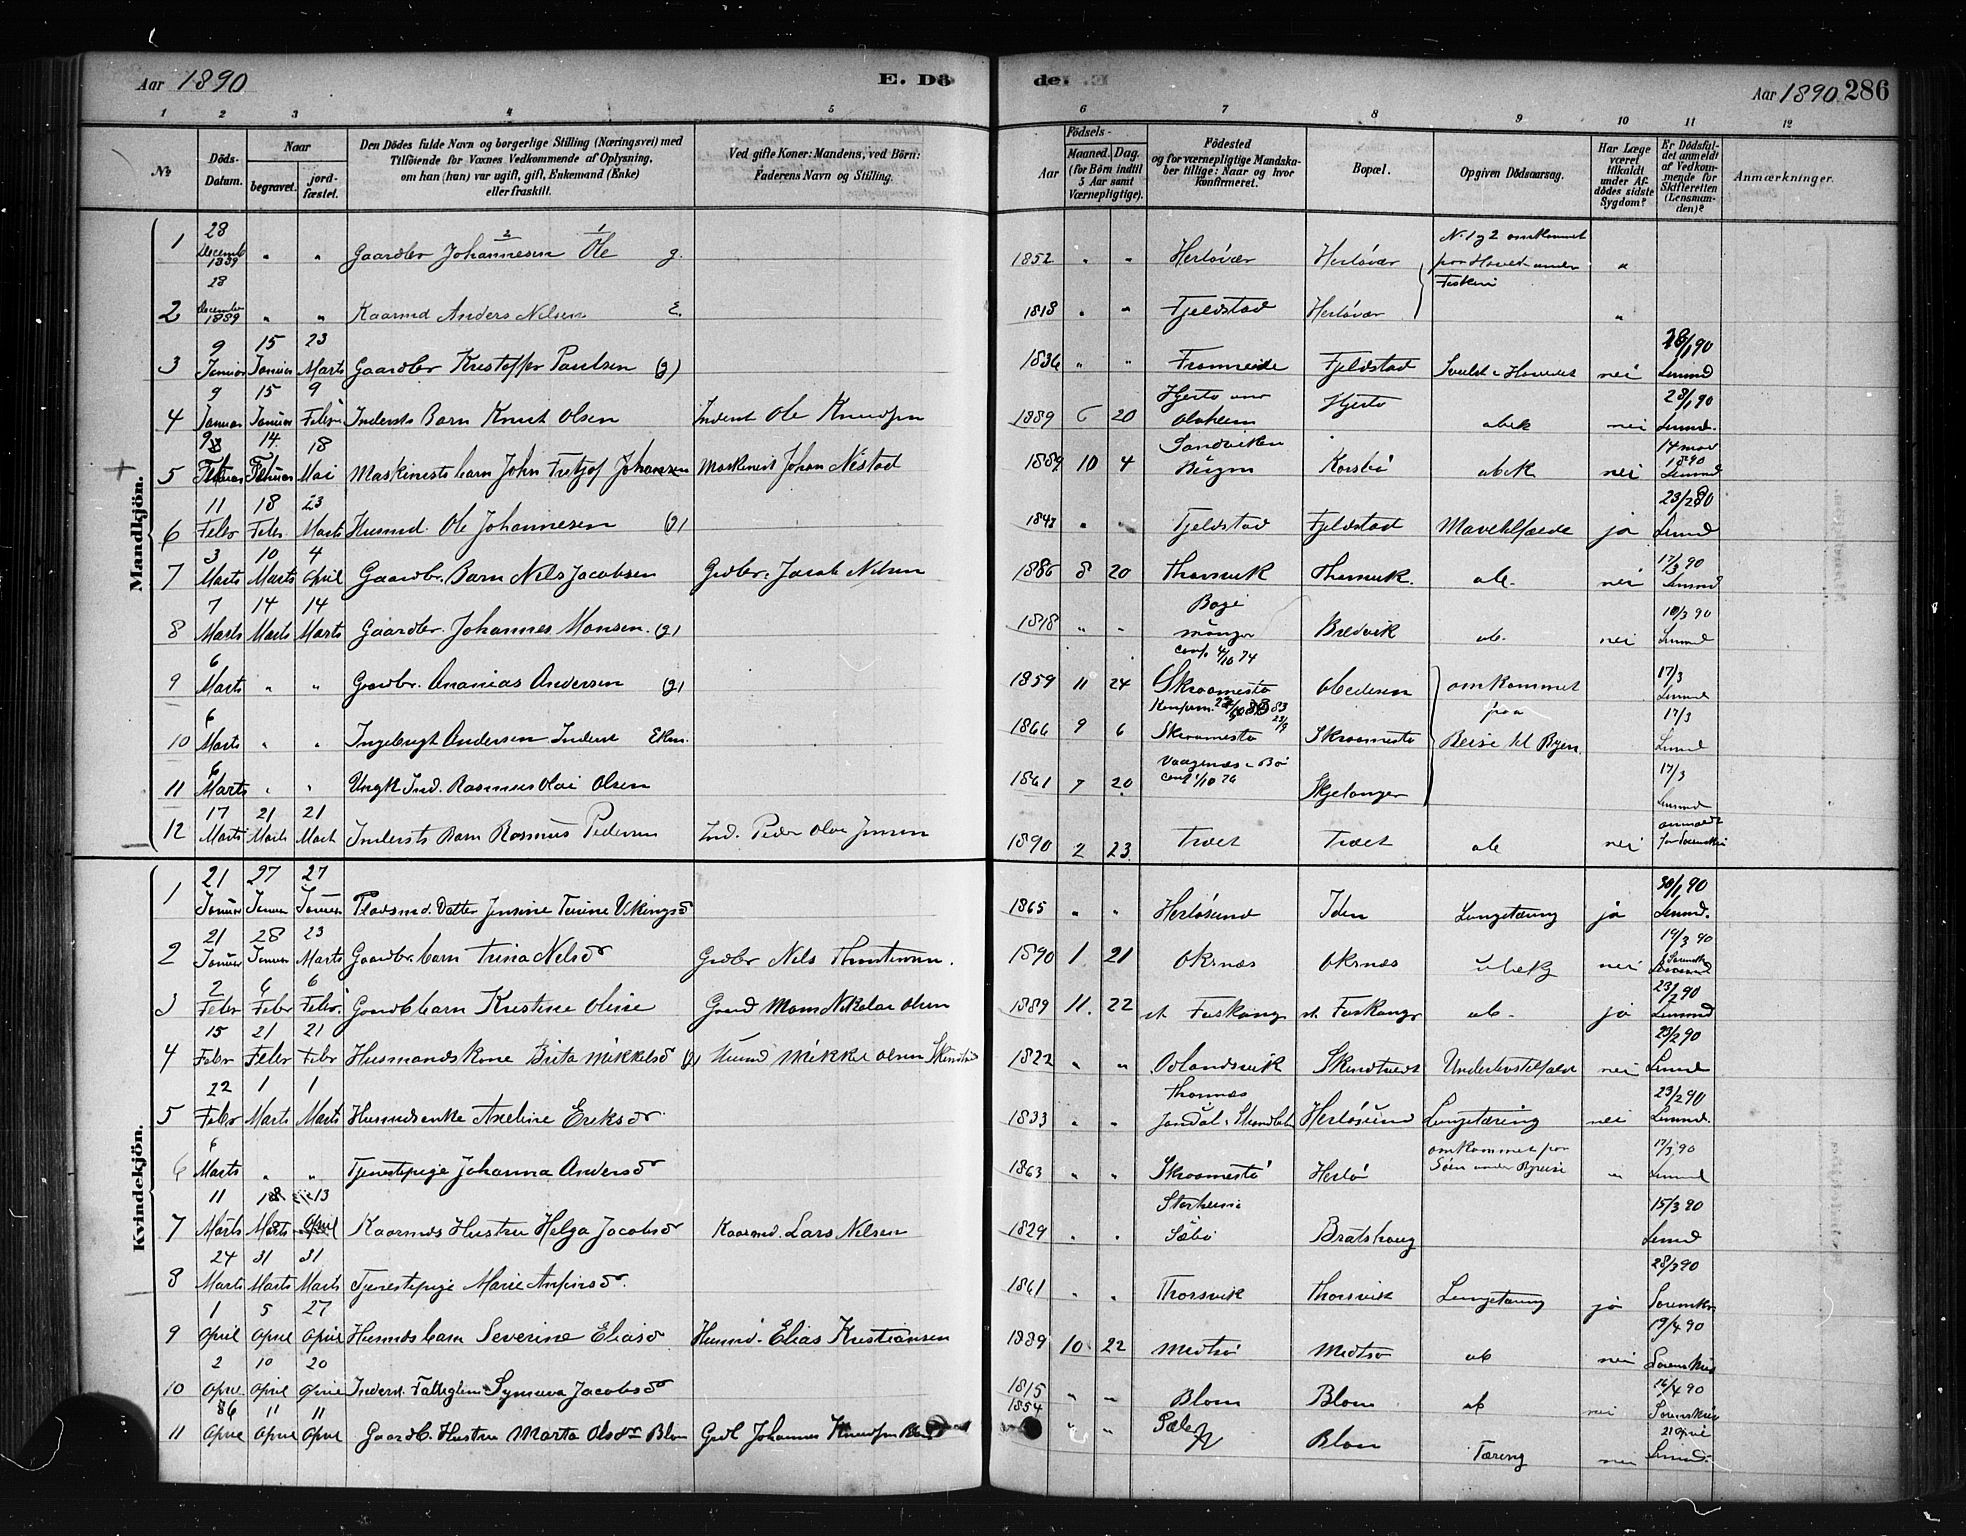 Aar 1890 E. Dö
de. Aar 1890 286
1 2 3 4 5 6 7 8 9 10 11 12
№
Döds-Datum.
Naar
begravet.
jord-fæstet.
Den Dödes fulde Navn og borgerlige Stilling (Næringsvei) med
Tilföiende for Voxnes Vedkommende af Oplysning,
om han (hun) var ugift, gift, Enkemand (Enke)
eller fraskilt.
Ved gifte Koner: Mandens, ved Börn:
Faderens Navn og Stilling.
Födsels-
Aar
Maaned. Dag.
(for Börn indtil
5 Aar samt
Værnepligtige).
Födested
og for værnepligtige Mandska-
ber tillige: Naar og hvor
konfirmeret.
Bopæl.
Opgiven Dödsaarsag.
Har Læge
været
tilkaldt
under Af-
dödes sidste
Sygdom?
Er Dödsfal-
det anmeldt
af Vedkom-
mende for
Skifteretten
(Lensman-
den)?
Anmærkninger.
Mandkjön.
1 28 Decemb 1889 " " Gaardbr Johannesen Ole g. 1852 " " Herløvær Herløvær No 1 og 2 omkommet paa Havet under Fiskeri "
2 28 December 1889 " " Kaarmd Anders Nilsen E. 1818 " " Fjeldstad Herløvær "
3 9 Januar 15 Januar 23 Marts Gaardbr Kristoffer Paulsen (g) 1836 " " Fromreide Fjeldstad nei 28/1 90 Lensmd
4 9 Januar 15 Januar 9 Febr Indersts Barn Knut Olsen Inderst Ole Knudsen 1889 6 20 Hjertø Hjertø ubek nei 28/1 90 Lensmd.
5 Februar 14 Februar 18 Mai Maskinists barn John Fritjof Johansen Maskinist Johan Nistad 1889 10 4 Sandviken Bergen ubek nei 14 mai 1890 Lensmd
6 11 Febr 18 Febr 23 Marts Husmd Ole Johannesen (g) " " Fjeldstad Fjeldstad Mavetilfælde ja 23/2 90 Lensmd
7 3 Marts 10 Marts 4 April Gaardbr. Barn Nils Jacobsen Grdbr. Jacob Nilsen 1886 8 20 Thorsvik Thorsvik. ub. nei 17/3 90 Lensmd
8 7 Marts 14 Marts 14 Marts Gaardbr. Johannes Monsen (g) 1818 " " Bøgi Manger Bredvik ub. nei 10/3 90 Lensmd
9 6 Marts " " Gaardbr. Ananias Andersen (g) 1859 11 24 conf. 4/10 74 Skraamestø omkommet paa Reise til Byen. 17/3 Lensmd
10 6 Marts " " Ingebrigt Andersen Inderst Ekm. 1866 9 6 Skraamestø Skraamestø 17/3 Lensmd
11 6 Marts " " Ungk Ind. Rasmus Olai Olsen 1861 7 20 Vaagenæs i Bø conf 1/10 76 Skjelanger 17/3 Lensmd
12 17 Marts 21 Marts 21 Mart Indersts Barn Rasmus Pedersen Ind. Peder Olai Jensen 1890 2 23 Træet Træet ub nei anmeldt
Kvindekjön.
1 21 Januar 27 Januar 27 Januar Pladsmd. Datter Jensine Vikingsd 1865 " " Herløsund Iden Lungetæring ja 30/1 90 Lensmd.
2 21 Januar 28 Januar 23 Marts Gaardbr. barn Trina Nilsd Grdbr Nils 1890 1 21 Oksnæs Oksnæs ubek nei 19/3 90
3 2 Febr 6 Febr 6 Febr. Gaardb barn Kristine Oline Gaard Mons Nikolai Olsen 1889 11. 22 st. Foskang st. Foskang ub. ja 23/2 90 Lensmd
4 15 Febr 21 Febr 21 Febr Husmandskone Brita Mikkelsd (g) Husmd Mikkel Olsen 1822 " " Aalandsvik Underlivstilfælde nei 23/2 90 Lensmd
5 22 Febr 1 Marts 1 Marts Husmdsenke Axeline Eriksdr. 1833 " " Herløsund Lungetæring nei 23/2 90 Lensmd.
6 6 Marts " " Tjenestpige Johanna Andersd 1863 " " Skraamestø Herlø omkommet paa Søen under Byreise " 17/3 90 Lensmd
7 11 Marts 18 Marts 13 April Kaarmds Hustru Helga Jacobsd Kaarmd. Lars Nilsen 1829 " " Storheim Sæbø Bratshaug 15/3 90 Lensmd
8 24 Marts 31 Marts 31 Marts Tjenestpige Marie Anfinsd. 1861 " " Thorsvik Thorsvik Lungetæring ja 28/3 90
9 1 April 5 April 27 April Husmds barn Severine Eliasd Husmd. Elias Kristiansen 1889 10 22 Midtsø Midtsø ub nei 19/4 90
10 2 April 10 April 20 April Inderst. Fattiglem Synneva Jacobsd 1815 " " Blom Blom ub nei 16/4 90
11 April 11 April 11 April Gaardb. Hustru Marta Olsdtr Blom Grdb Johannes Knudsen Blom 1854 " " Blom Tæring nei 21 April Lensmd.